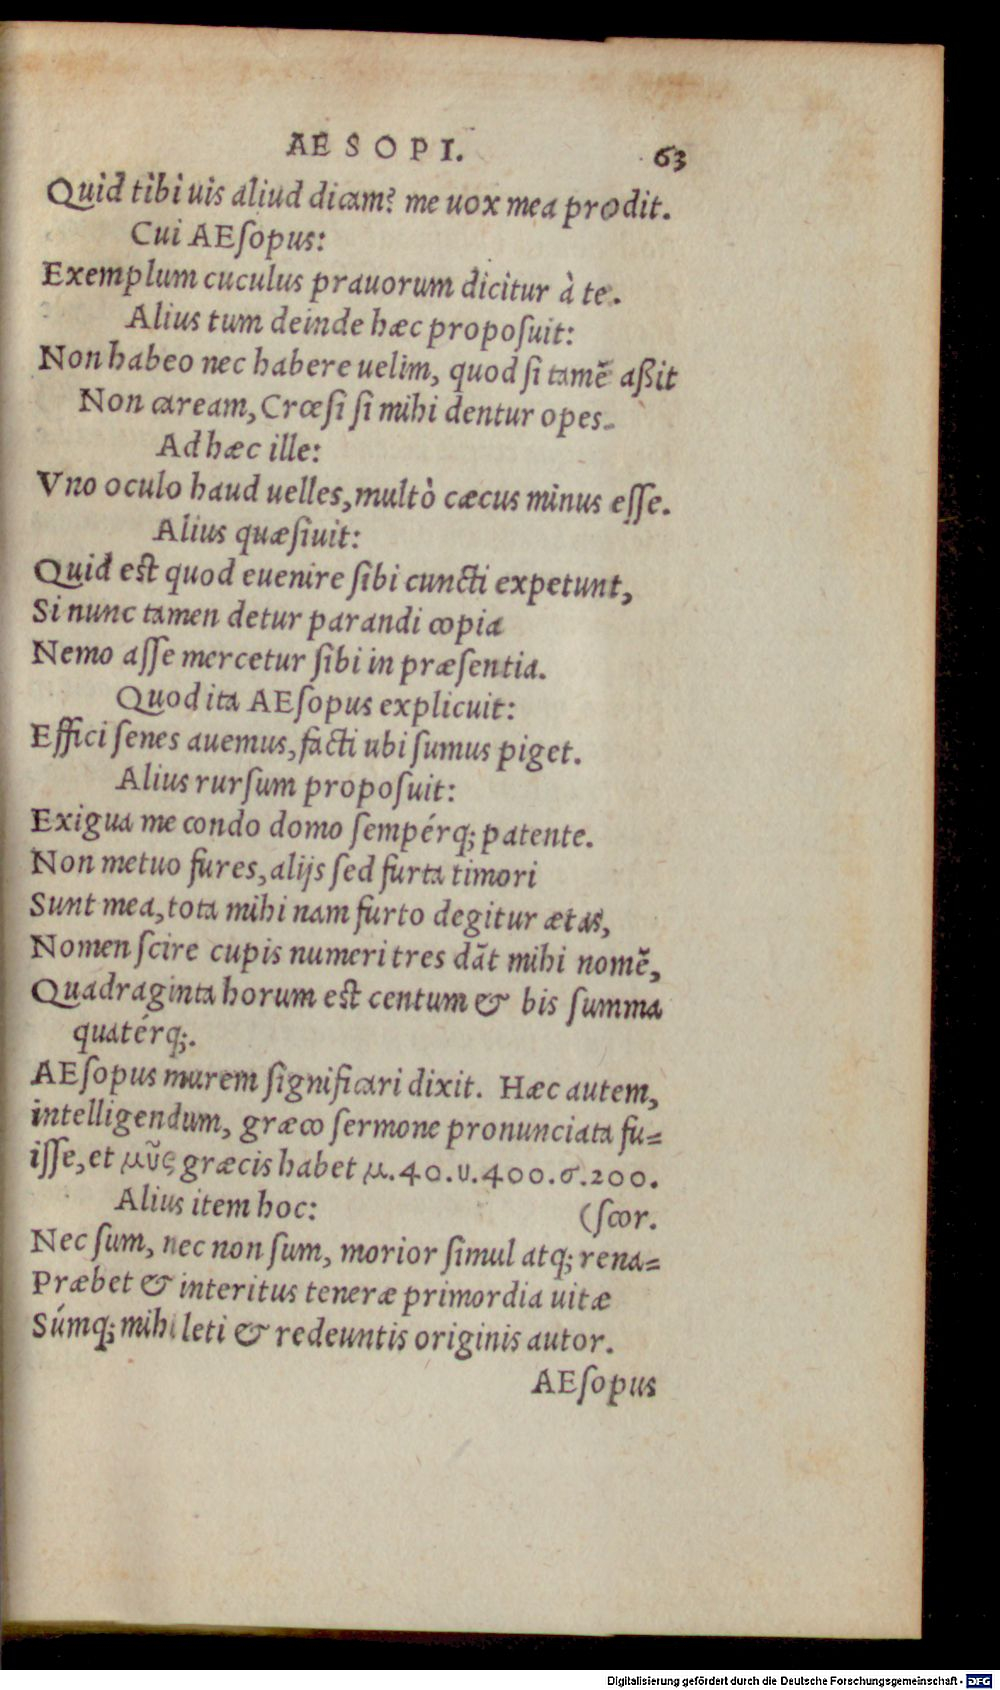 AESOPI. 63
Quid tibi uis aliud dicam? me uox mea prodit.
Cui AEſopus:
Exemplum cuculus prauorum dicitur à te.
Alius tum deinde hæc propoſuit:
Non habeo nec habere uelim, quod ſi tamẽ aßit
Non caream, Crœſi ſi mihi dentur opes.
Ad hæc ille:
Vno oculo haud uelles, multò cæcus minus eſſe.
Alius quæſiuit:
Quid est quod euenire ſibi cuncti expetunt,
Si nunc tamen detur parandi copia
Nemo aſſe mercetur ſibi in præſentia.
Quod ita AEſopus explicuit:
Effici ſenes auemus, facti ubi ſumus piget.
Alius rurſum propoſuit:
Exigua me condo domo ſempérq; patente.
Non metuo fures, alijs ſed furta timori
Sunt mea, tota mihi nam furto degitur ætas,
Nomen ſcire cupis numeri tres dãt mihi nomẽ,
Quadraginta horum est centum & bis ſumma
quatérq;.
AEſopus murem ſignificari dixit. Hæc autem,
intelligendum, græco ſermone pronunciata fu=
iſſe, et μῦς græcis habet μ.40.υ.400.σ.200.
Alius item hoc: (ſcor.
Nec ſum, nec non ſum, morior ſimul atq; rena=
Præbet & interitus teneræ primordia uitæ
Súmq; mihi leti & redeuntis originis autor.
AEſopus
Digitalisierung gefördert durch die Deutsche Forschungsgemeinschaft - DFG